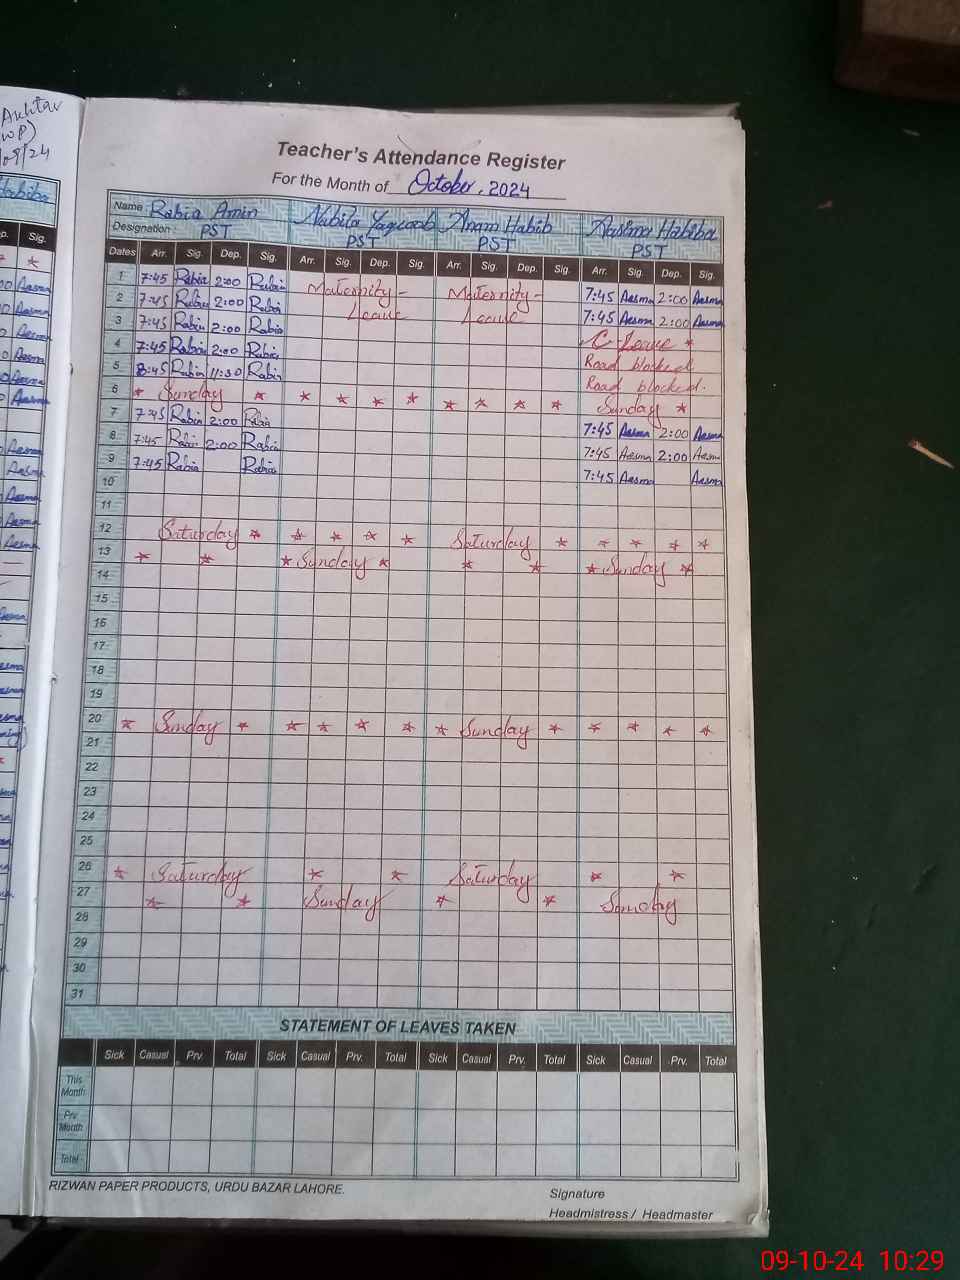 Akhtar
09/24
Habiba
p. Sig.
Teacher's Attendance Register
For the Month of October, 2024
Name Rabia Amin Nabila Yaqoob Anam Habib Aasma Habiba
Designation PST PST PST PST
Dates Arr. Sig. Dep. Sig. Arr. Sig. Dep. Sig. Arr. Sig. Dep. Sig. Arr. Sig. Dep. Sig.
1 7:45 Rabia 2:00 Rabia Maternity - Maternity - 7:45 Aasma 2:00 Aasma
2 7:45 Rabia 2:00 Rabia Leave Leave 7:45 Aasma 2:00 Aasma
3 7:45 Rabia 2:00 Rabia C Leave *
4 7:45 Rabia 2:00 Rabia Road blocked
5 8:45 Rabia 11:30 Rabia Road blocked.
6 * Sunday * * * * * * * * * Sunday *
7 7:45 Rabia 2:00 Rabia 7:45 Aasma 2:00 Aasma
8 7:45 Rabia 2:00 Rabia 7:45 Aasma 2:00 Aasma
9 7:45 Rabia Rabia 7:45 Aasma Aasma
10
11
12 Saturday * * * * * Saturday * * * * *
13 * * * Sunday * * * * Sunday *
14
15
16
17
18
19
20 * Sunday * * * * * * Sunday * * * * *
21
22
23
24
25
26 * Saturday * * Saturday * *
27 * * Sunday * * Sunday
28
29
30
31
STATEMENT OF LEAVES TAKEN
Sick Casual Prv. Total Sick Casual Prv. Total Sick Casual Prv. Total Sick Casual Prv. Total
This Month
Prv. Month
Total
RIZWAN PAPER PRODUCTS, URDU BAZAR LAHORE.
Signature
Headmistress / Headmaster
09-10-24 10:29